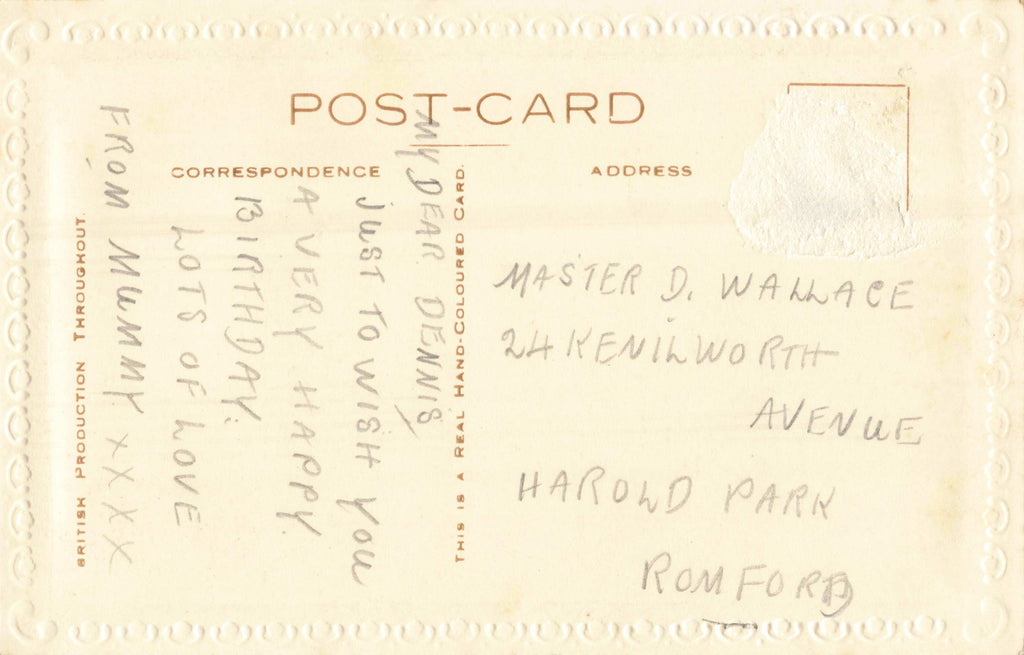 POST-CARD
CORRESPONDENCE
ADDRESS
BRITISH PRODUCTION THROUGHOUT.
THIS IS A REAL HAND-COLOURED CARD.
MY DEAR DENNIS
JUST TO WISH YOU
A VERY HAPPY
BIRTHDAY.
LOTS OF LOVE
FROM MUMMY X X X X
MASTER D. WALLACE
24 KENILWORTH
AVENUE
HAROLD PARK
ROMFORD